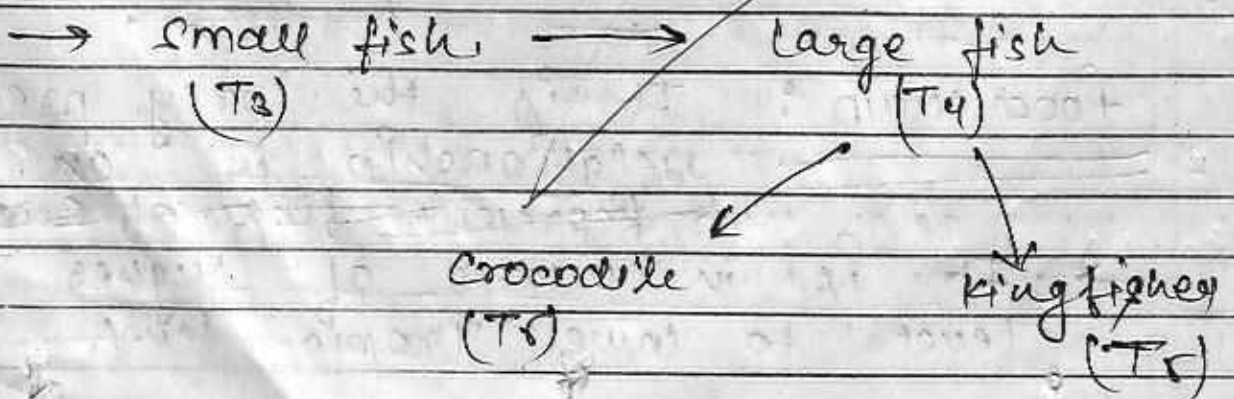 → Small fish. → Large fish
(T3) (T4)
Crocodile Kingfisher
(T5) (T5)